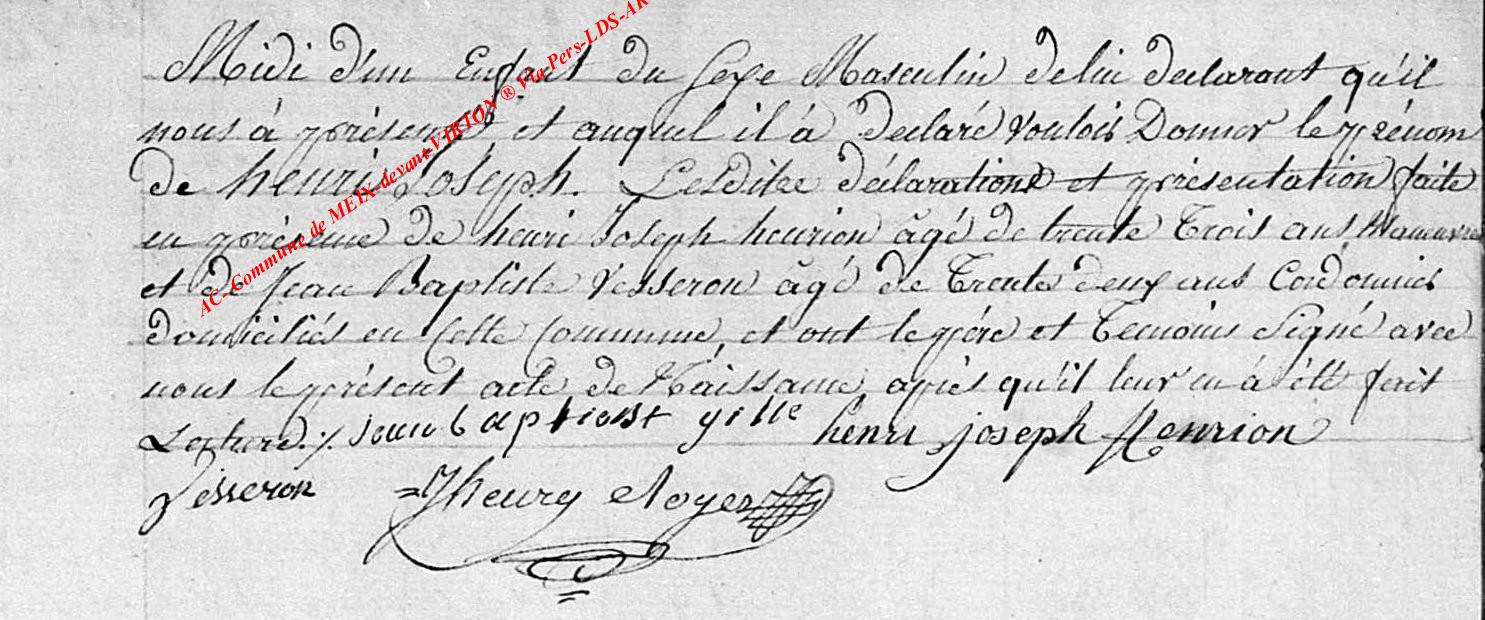 Midi d'un Enfant du Sexe Masculin de lui declarant qu'il
nous à présenté et auquel il à declaré vouloir Donner le prénom
de henri Joseph. Lesdites déclarations et présentation faite
en présence de henri Joseph henrion âgé de trente Trois ans Manœuvre
et de Jean Baptiste Vesseron âgé de Trente deux ans Cordonnier
domiciliés en Cette Commune, et ont le père et Temoins Signé avec
nous le présent acte de Naissance, après qu'il leur en à été fait
Lecture ./. jean baptiost gille henri joseph Henrion
Vesseron Jhenry
AC-Commune de MEIX-devant-VIRTON ® Via Pers-LDS-AR